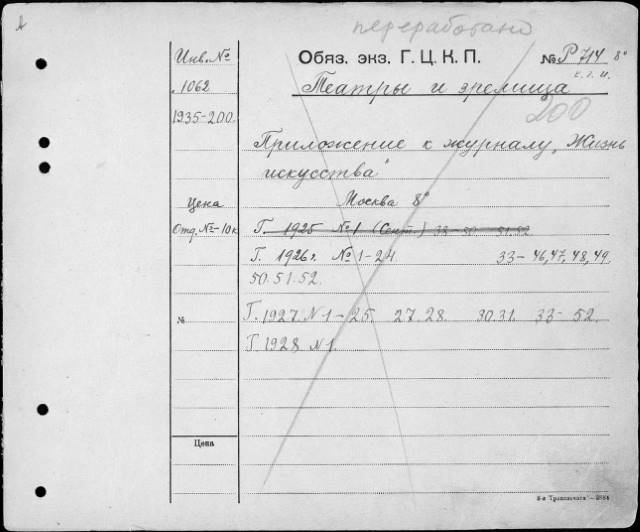 переработано
Инв. №
Обяз. экз. Г. Ц. К. П.
№ Р 714 8°
1062
Театры и зрелища
200
1935-200
Приложение к журналу „Жизнь
искусства"
Цена
Москва 8°
Отд. №-10к
Г. 1925 № 1 (Сент.) 33-50 51.52
Г. 1926г. № 1-24 33-46,47,48,49.
50.51.52.
№
Г. 1927. N 1-25. 27.28. 30.31. 33-52.
Г 1928 N 1.
Цена